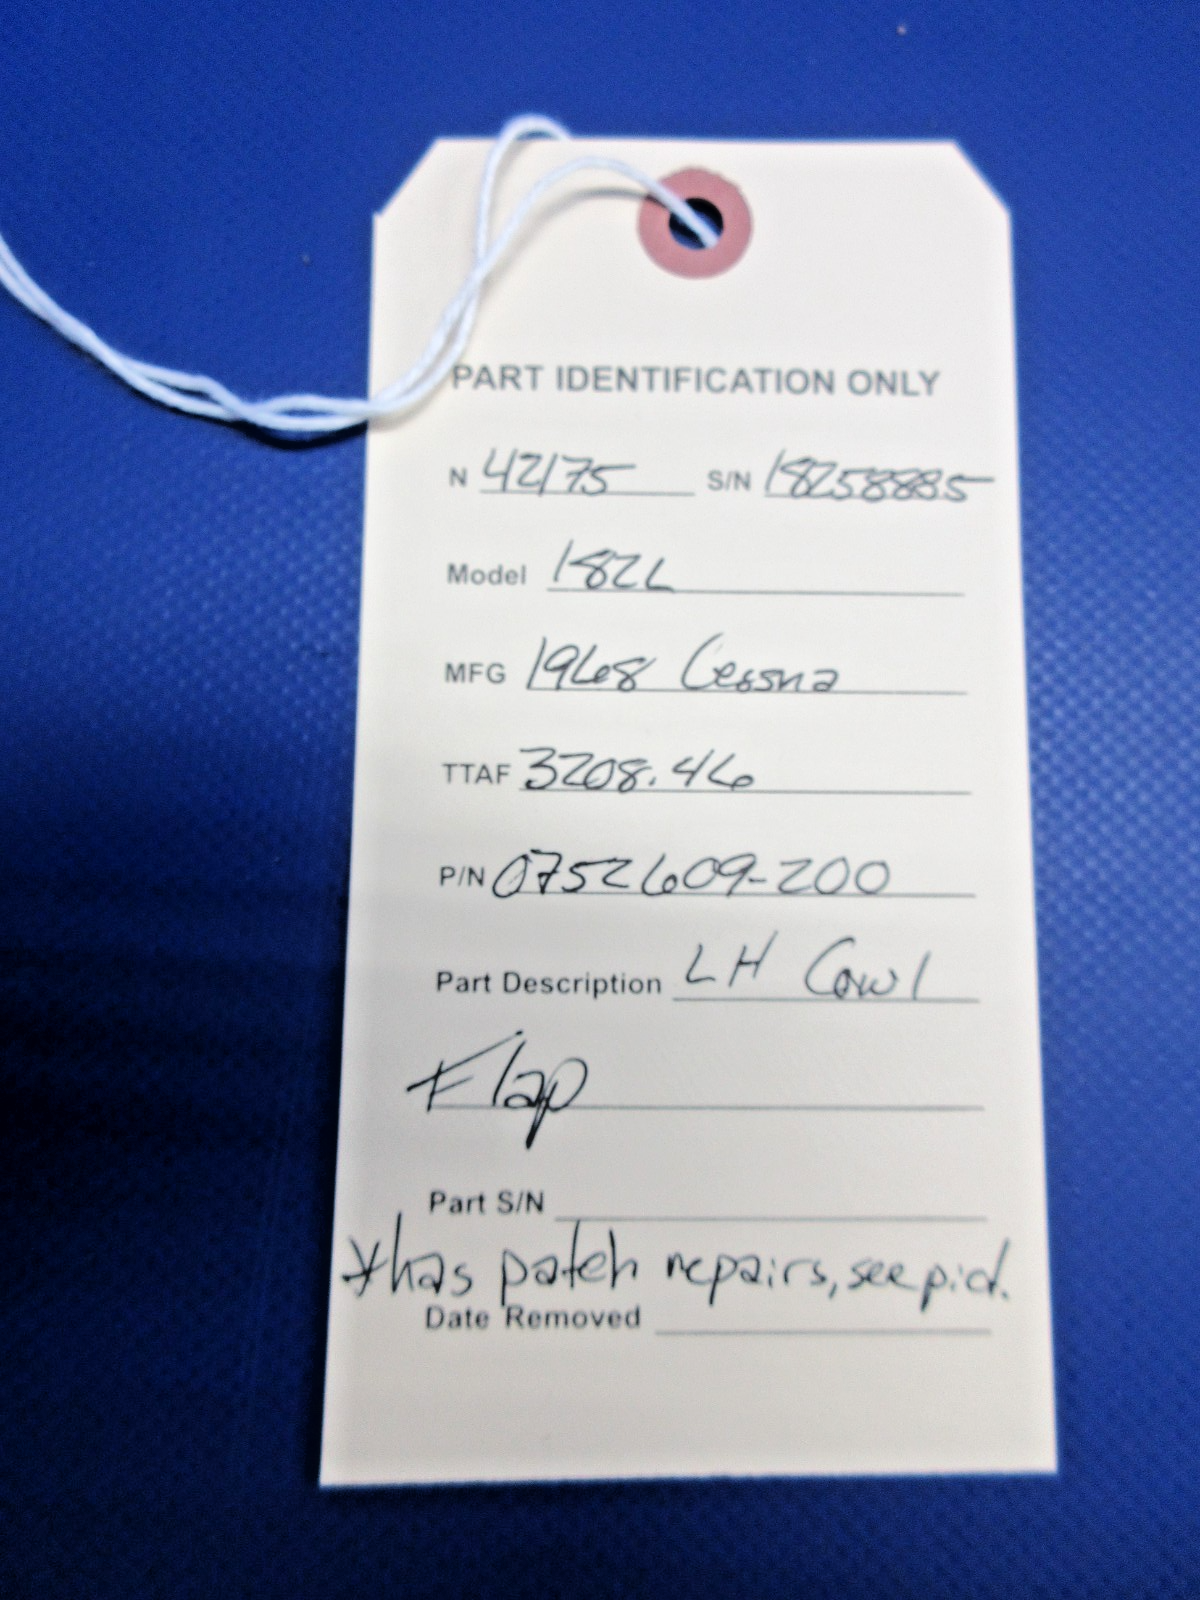 PART IDENTIFICATION ONLY
N 42175 S/N 18258885
Model 182L
MFG 1968 Cessna
TTAF 3208.46
P/N 0752609-200
Part Description LH Cowl
Flap
Part S/N
*has patch repairs, see pic.
Date Removed